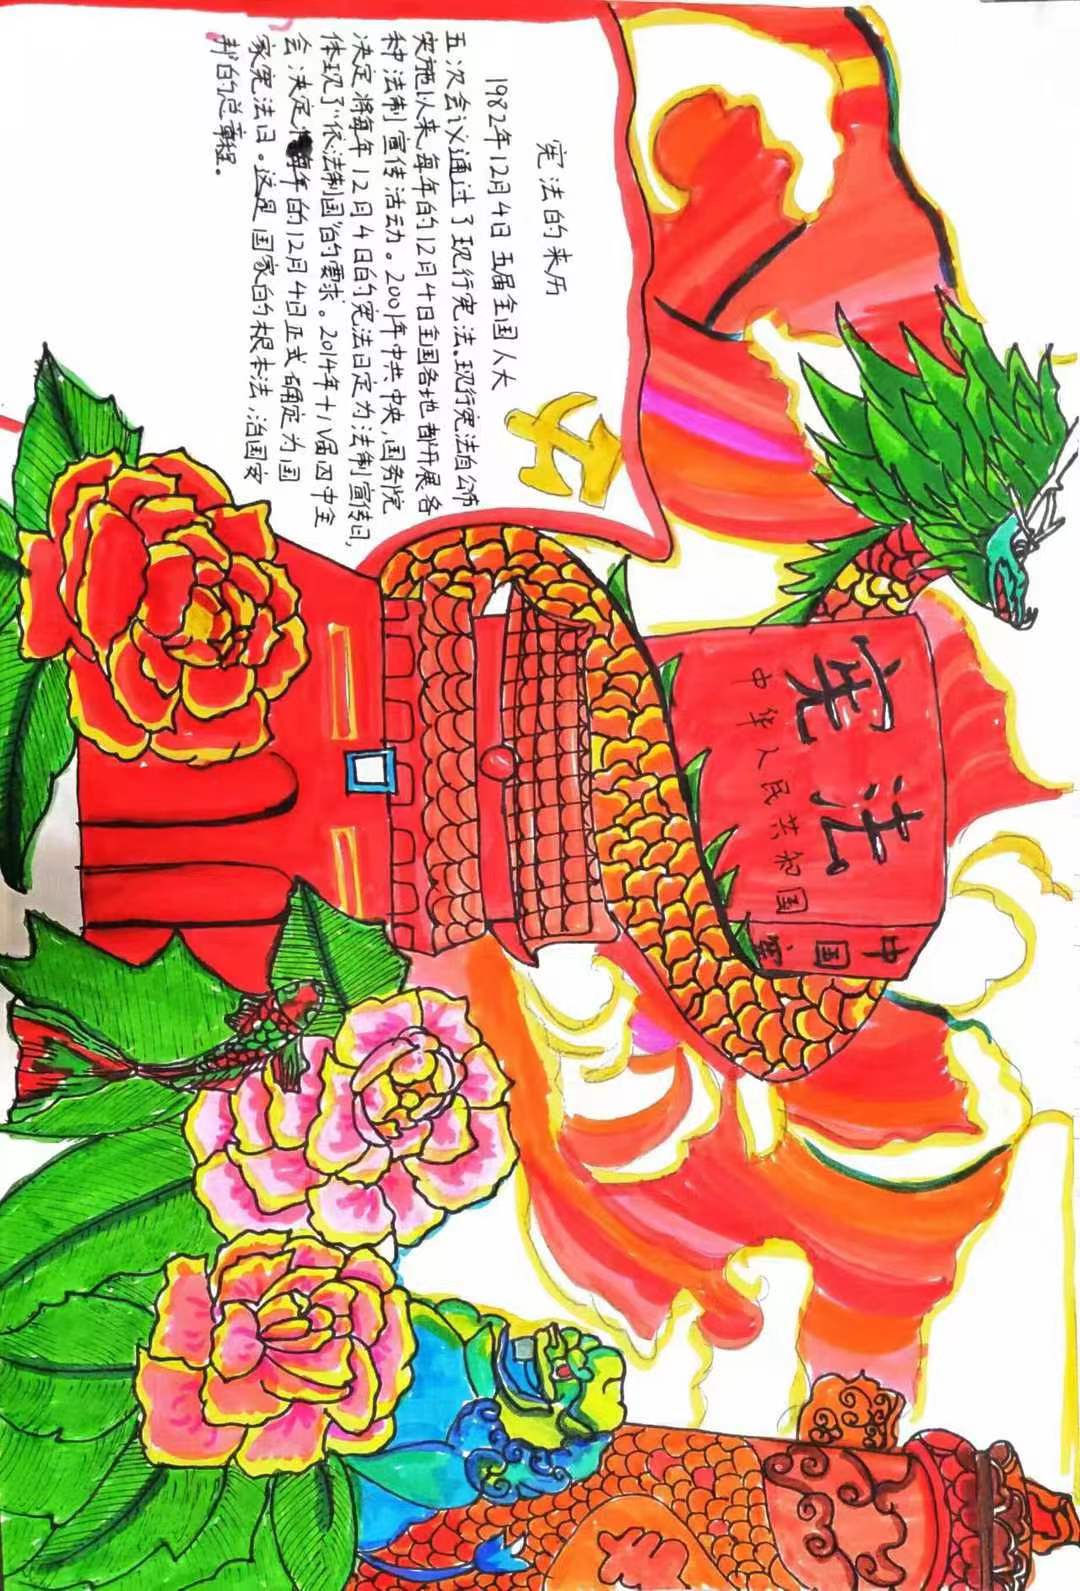 宪法的来历
1982年12月4日五届全国人大
五次会议通过了现行宪法。现行宪法自公布
实施以来每年的12月4日全国各地都开展各
种法制宣传活动。2001年中共中央、国务院
决定将每年12月4日的宪法日定为法制宣传日,
体现了“依法制国”的要求。2014年十八届四中全
会决定将每年的12月4日正式确定为国
家宪法日。这是国家的根本法治国安
邦的总章程。
宪法
中华人民共和国
中国